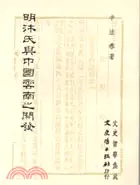 文史哲學集成
文史哲出版社印行
辛法春著
明沐氏與中國雲南之開發